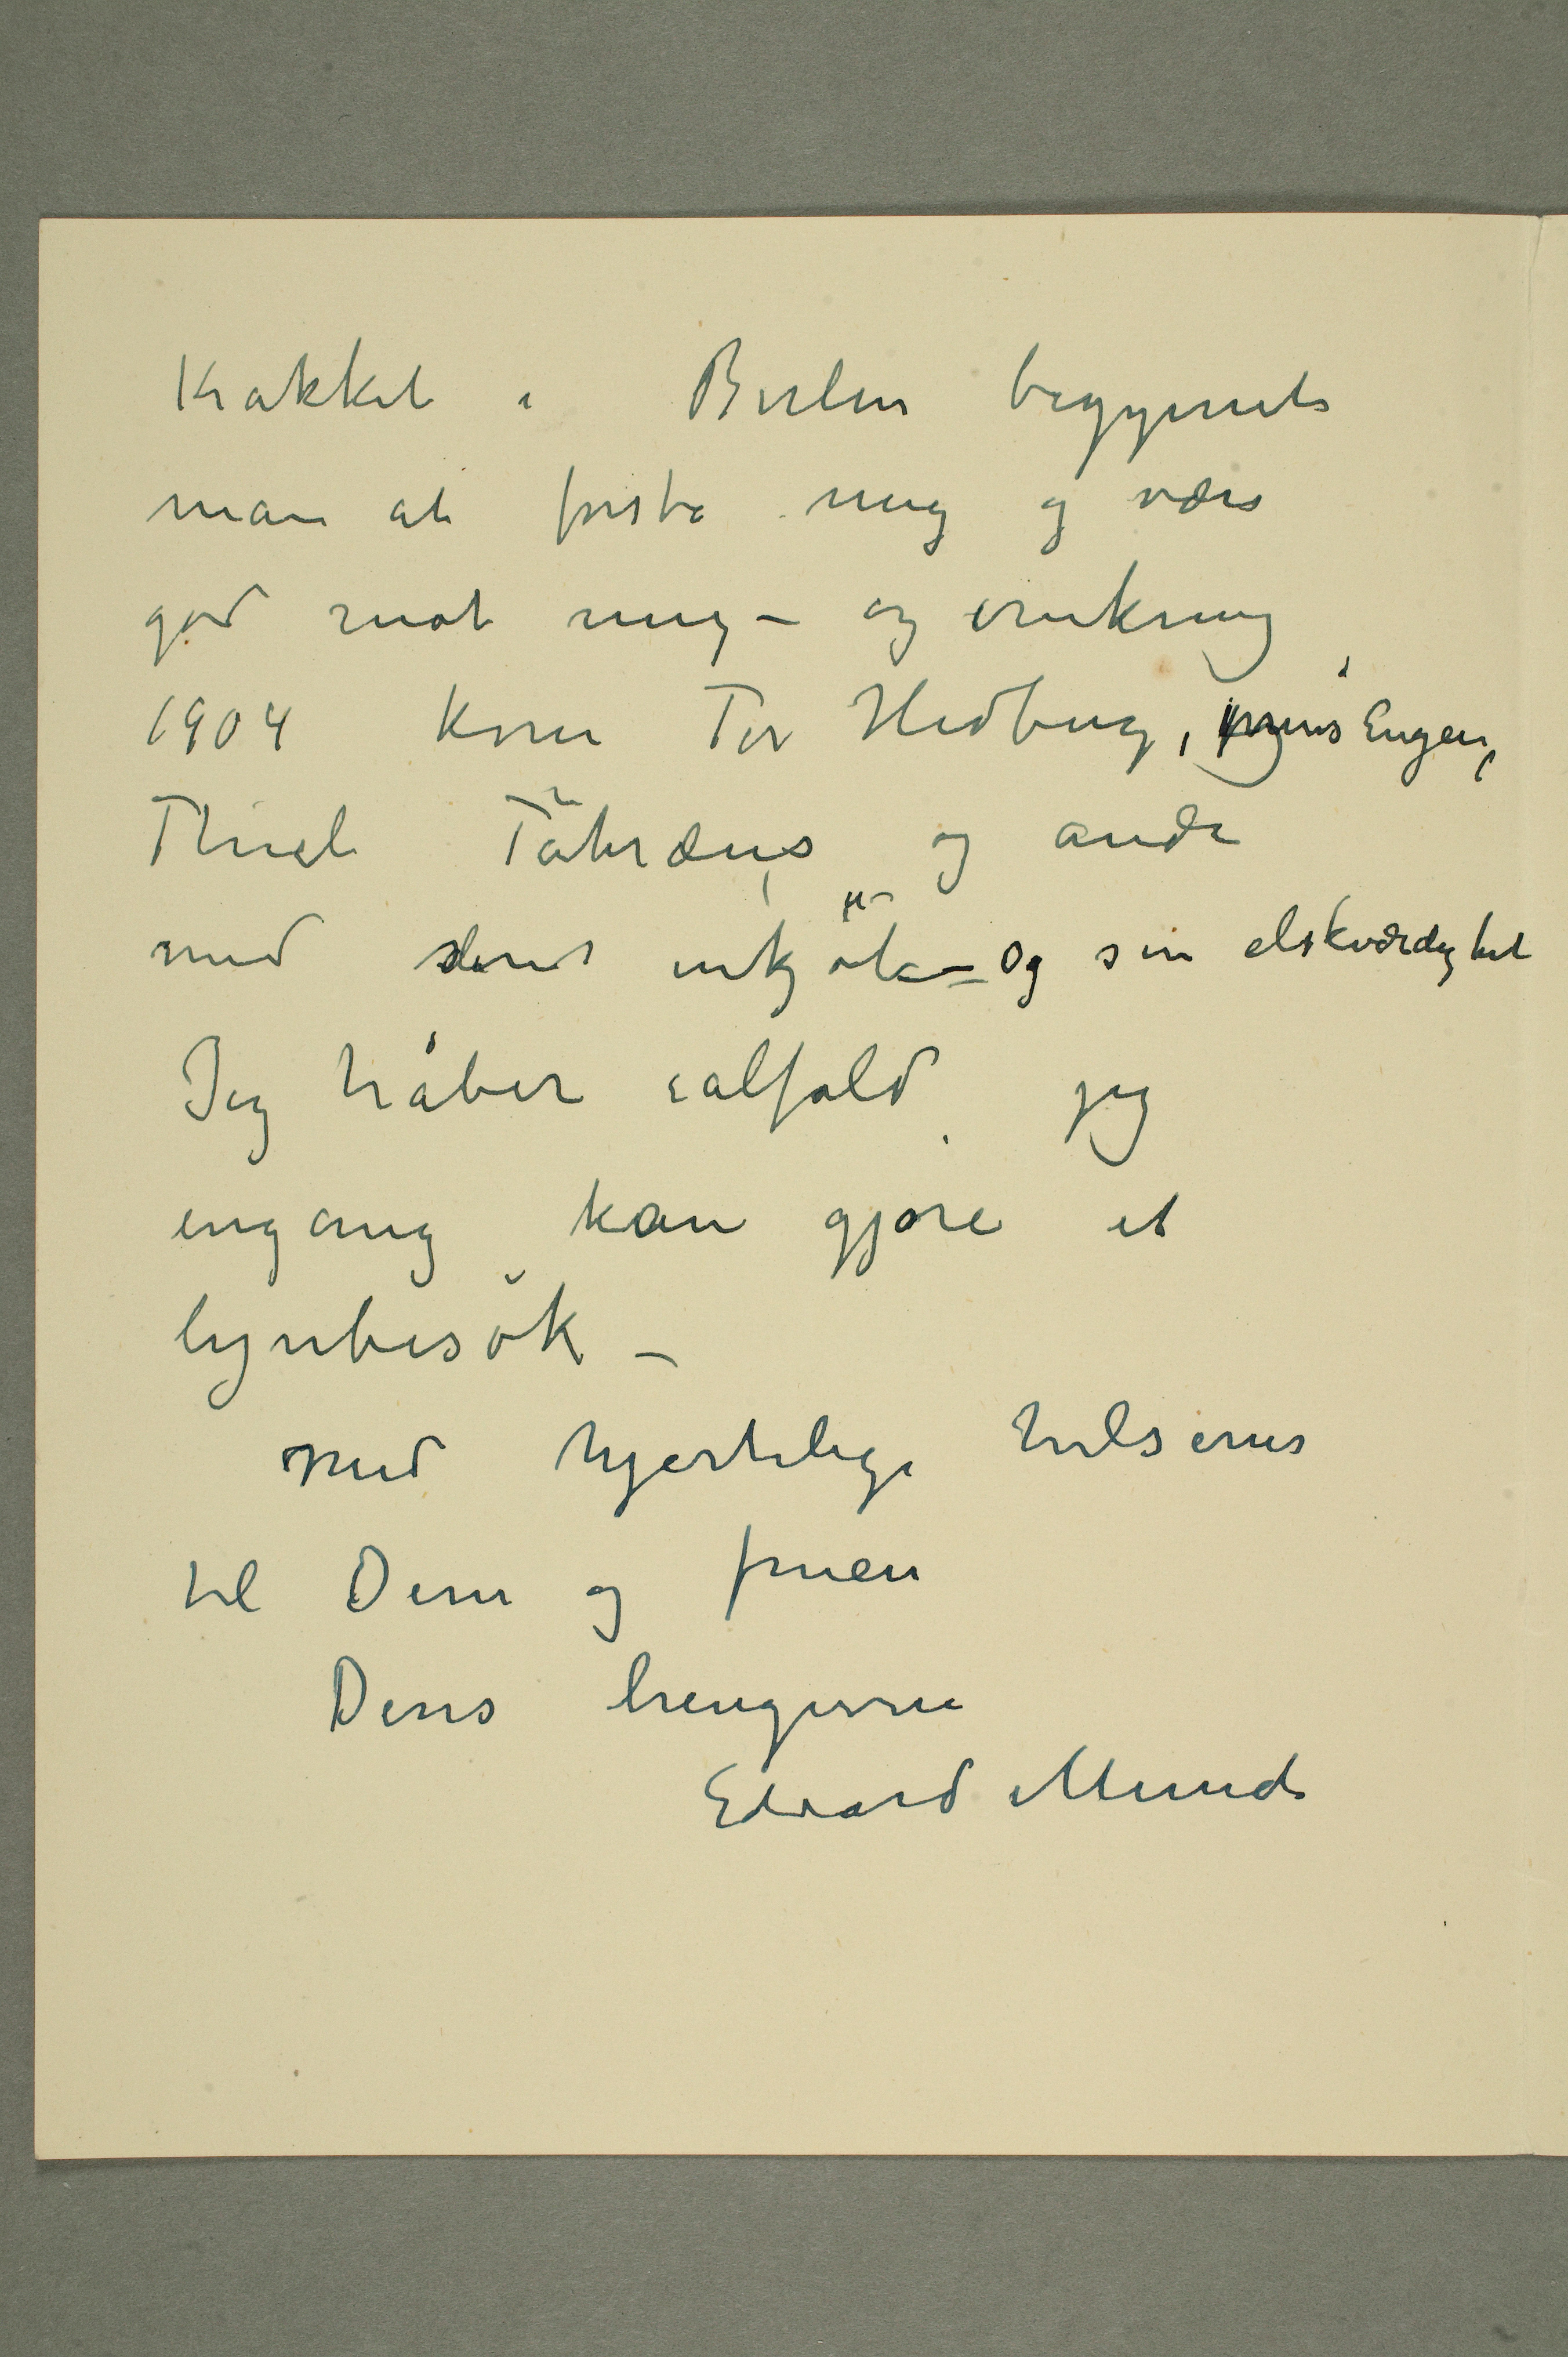 Krakket i Berlin begynte
man at forstå mig og være
god mot mig – og omkring
1904 kom Tor Hedberg, prins Eugen,
Thiel Fåhræus og andre
med sine inkjöb – og sin elskværdighet
Jeg håber ialfald jeg
engang kan gjøre et
lynbesök –
Med hjertelige hilsener
til Dem og fruen
Deres hengivne
Edvard Munch